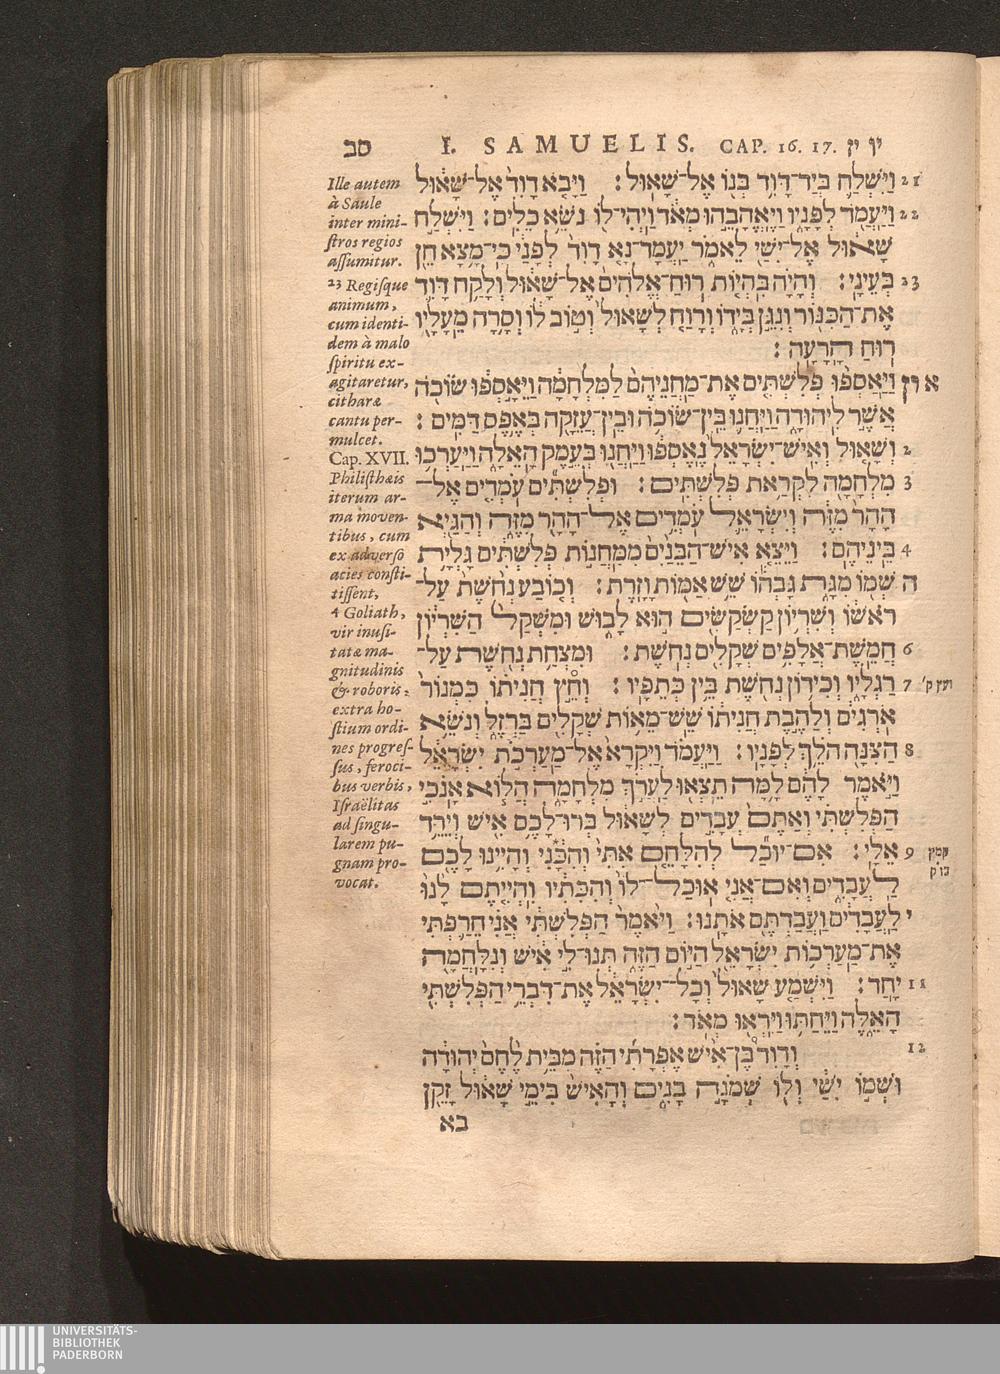 סב I. SAMUELIS. CAP. 16. 17. יו יז
וַיִּשְׁלַח בְּיַד־דָּוִד בְּנוֹ אֶל־שָׁאוּל׃ וַיָּבֹא דָוִד אֶל־שָׁאוּל 21
וַיַּעֲמֹד לְפָנָיו וַיֶּאֱהָבֵהוּ מְאֹד וַיְהִי־לוֹ נֹשֵׂא כֵלִים׃ וַיִּשְׁלַח 22
שָׁאוּל אֶל־יִשַׁי לֵאמֹר יַעֲמָד־נָא דָוִד לְפָנַי כִּי־מָצָא חֵן
בְּעֵינָי׃ וְהָיָה בִּהְיוֹת רוּחַ־אֱלֹהִים אֶל־שָׁאוּל וְלָקַח דָּוִד 23
אֶת־הַכִּנּוֹר וְנִגֵּן בְּיָדוֹ וְרָוַח לְשָׁאוּל וְטוֹב לוֹ וְסָרָה מֵעָלָיו
רוּחַ הָרָעָה׃
א יז וַיַּאַסְפוּ פְלִשְׁתִּים אֶת־מַחֲנֵיהֶם לַמִּלְחָמָה וַיֵּאָסְפוּ שׂוֹכֹה
אֲשֶׁר לִיהוּדָה וַיַּחֲנוּ בֵּין־שׂוֹכֹה וּבֵין־עֲזֵקָה בְּאֶפֶס דַּמִּים׃
2 וְשָׁאוּל וְאִישׁ־יִשְׂרָאֵל נֶאֶסְפוּ וַיַּחֲנוּ בְּעֵמֶק הָאֵלָה וַיַּעַרְכוּ
3 מִלְחָמָה לִקְרַאת פְּלִשְׁתִּים׃ וּפְלִשְׁתִּים עֹמְדִים אֶל־
הָהָר מִזֶּה וְיִשְׂרָאֵל עֹמְדִים אֶל־הָהָר מִזֶּה וְהַגַּיְא
4 בֵּינֵיהֶם׃ וַיֵּצֵא אִישׁ־הַבֵּנַיִם מִמַּחֲנוֹת פְּלִשְׁתִּים גָּלְיָת
ה שְׁמוֹ מִגַּת גָּבְהוֹ שֵׁשׁ אַמּוֹת וָזָרֶת׃ וְכוֹבַע נְחֹשֶׁת עַל־
רֹאשׁוֹ וְשִׁרְיוֹן קַשְׂקַשִּׂים הוּא לָבוּשׁ וּמִשְׁקַל הַשִּׁרְיוֹן
6 חֲמֵשֶׁת־אֲלָפִים שְׁקָלִים נְחֹשֶׁת׃ וּמִצְחַת נְחֹשֶׁת עַל־
7 רַגְלָיו וְכִידוֹן נְחֹשֶׁת בֵּין כְּתֵפָיו׃ וְחֵץ חֲנִיתוֹ כִּמְנוֹר ועץ ק'
אֹרְגִים וְלַהֶבֶת חֲנִיתוֹ שֵׁשׁ־מֵאוֹת שְׁקָלִים בַּרְזֶל וְנֹשֵׂא
8 הַצִּנָּה הֹלֵךְ לְפָנָיו׃ וַיַּעֲמֹד וַיִּקְרָא אֶל־מַעַרְכֹת יִשְׂרָאֵל
וַיֹּאמֶר לָהֶם לָמָּה תֵצְאוּ לַעֲרֹךְ מִלְחָמָה הֲלוֹא אָנֹכִי
הַפְּלִשְׁתִּי וְאַתֶּם עֲבָדִים לְשָׁאוּל בְּרוּ־לָכֶם אִישׁ וְיֵרֵד
9 אֵלָי׃ אִם־יוּכַל לְהִלָּחֵם אִתִּי וְהִכָּנִי וְהָיִינוּ לָכֶם קמץ
לַעֲבָדִים וְאִם־אֲנִי אוּכַל־לוֹ וְהִכִּתִיו וִהְיִיתֶם לָנוּ
י לַעֲבָדִים וַעֲבַדְתֶּם אֹתָנוּ׃ וַיֹּאמֶר הַפְּלִשְׁתִּי אֲנִי חֵרַפְתִּי
אֶת־מַעַרְכוֹת יִשְׂרָאֵל הַיּוֹם הַזֶּה תְּנוּ־לִי אִישׁ וְנִלָּחֲמָה
11 יָחַד׃ וַיִּשְׁמַע שָׁאוּל וְכָל־יִשְׂרָאֵל אֶת־דִּבְרֵי הַפְּלִשְׁתִּי
הָאֵלֶּה וַיֵּחַתּוּ וַיִּרְאוּ מְאֹד׃
12 וְדָוִד בֶּן־אִישׁ אֶפְרָתִי הַזֶּה מִבֵּית לֶחֶם יְהוּדָה
וּשְׁמוֹ יִשַׁי וְלוֹ שְׁמֹנָה בָנִים וְהָאִישׁ בִּימֵי שָׁאוּל זָקֵן
בא
Ille autem
à Saule
inter mini-
ſtros regios
aſſumitur.
23 Regiſque
animum,
cum identi-
dem à malo
ſpiritu ex-
agitaretur,
citharæ
cantu per-
mulcet.
Cap. XVII.
Philiſthæis
iterum ar-
ma moven-
tibus, cum
ex adverſo
acies conſti-
tiſſent,
4 Goliath,
vir inuſi-
tatæ ma-
gnitudinis
& roboris,
extra ho-
ſtium ordi-
nes progreſ-
ſus, feroci-
bus verbis,
Iſraëlitas
ad ſingu-
larem pu-
gnam pro-
vocat.
UNIVERSITÄTS-
BIBLIOTHEK
PADERBORN